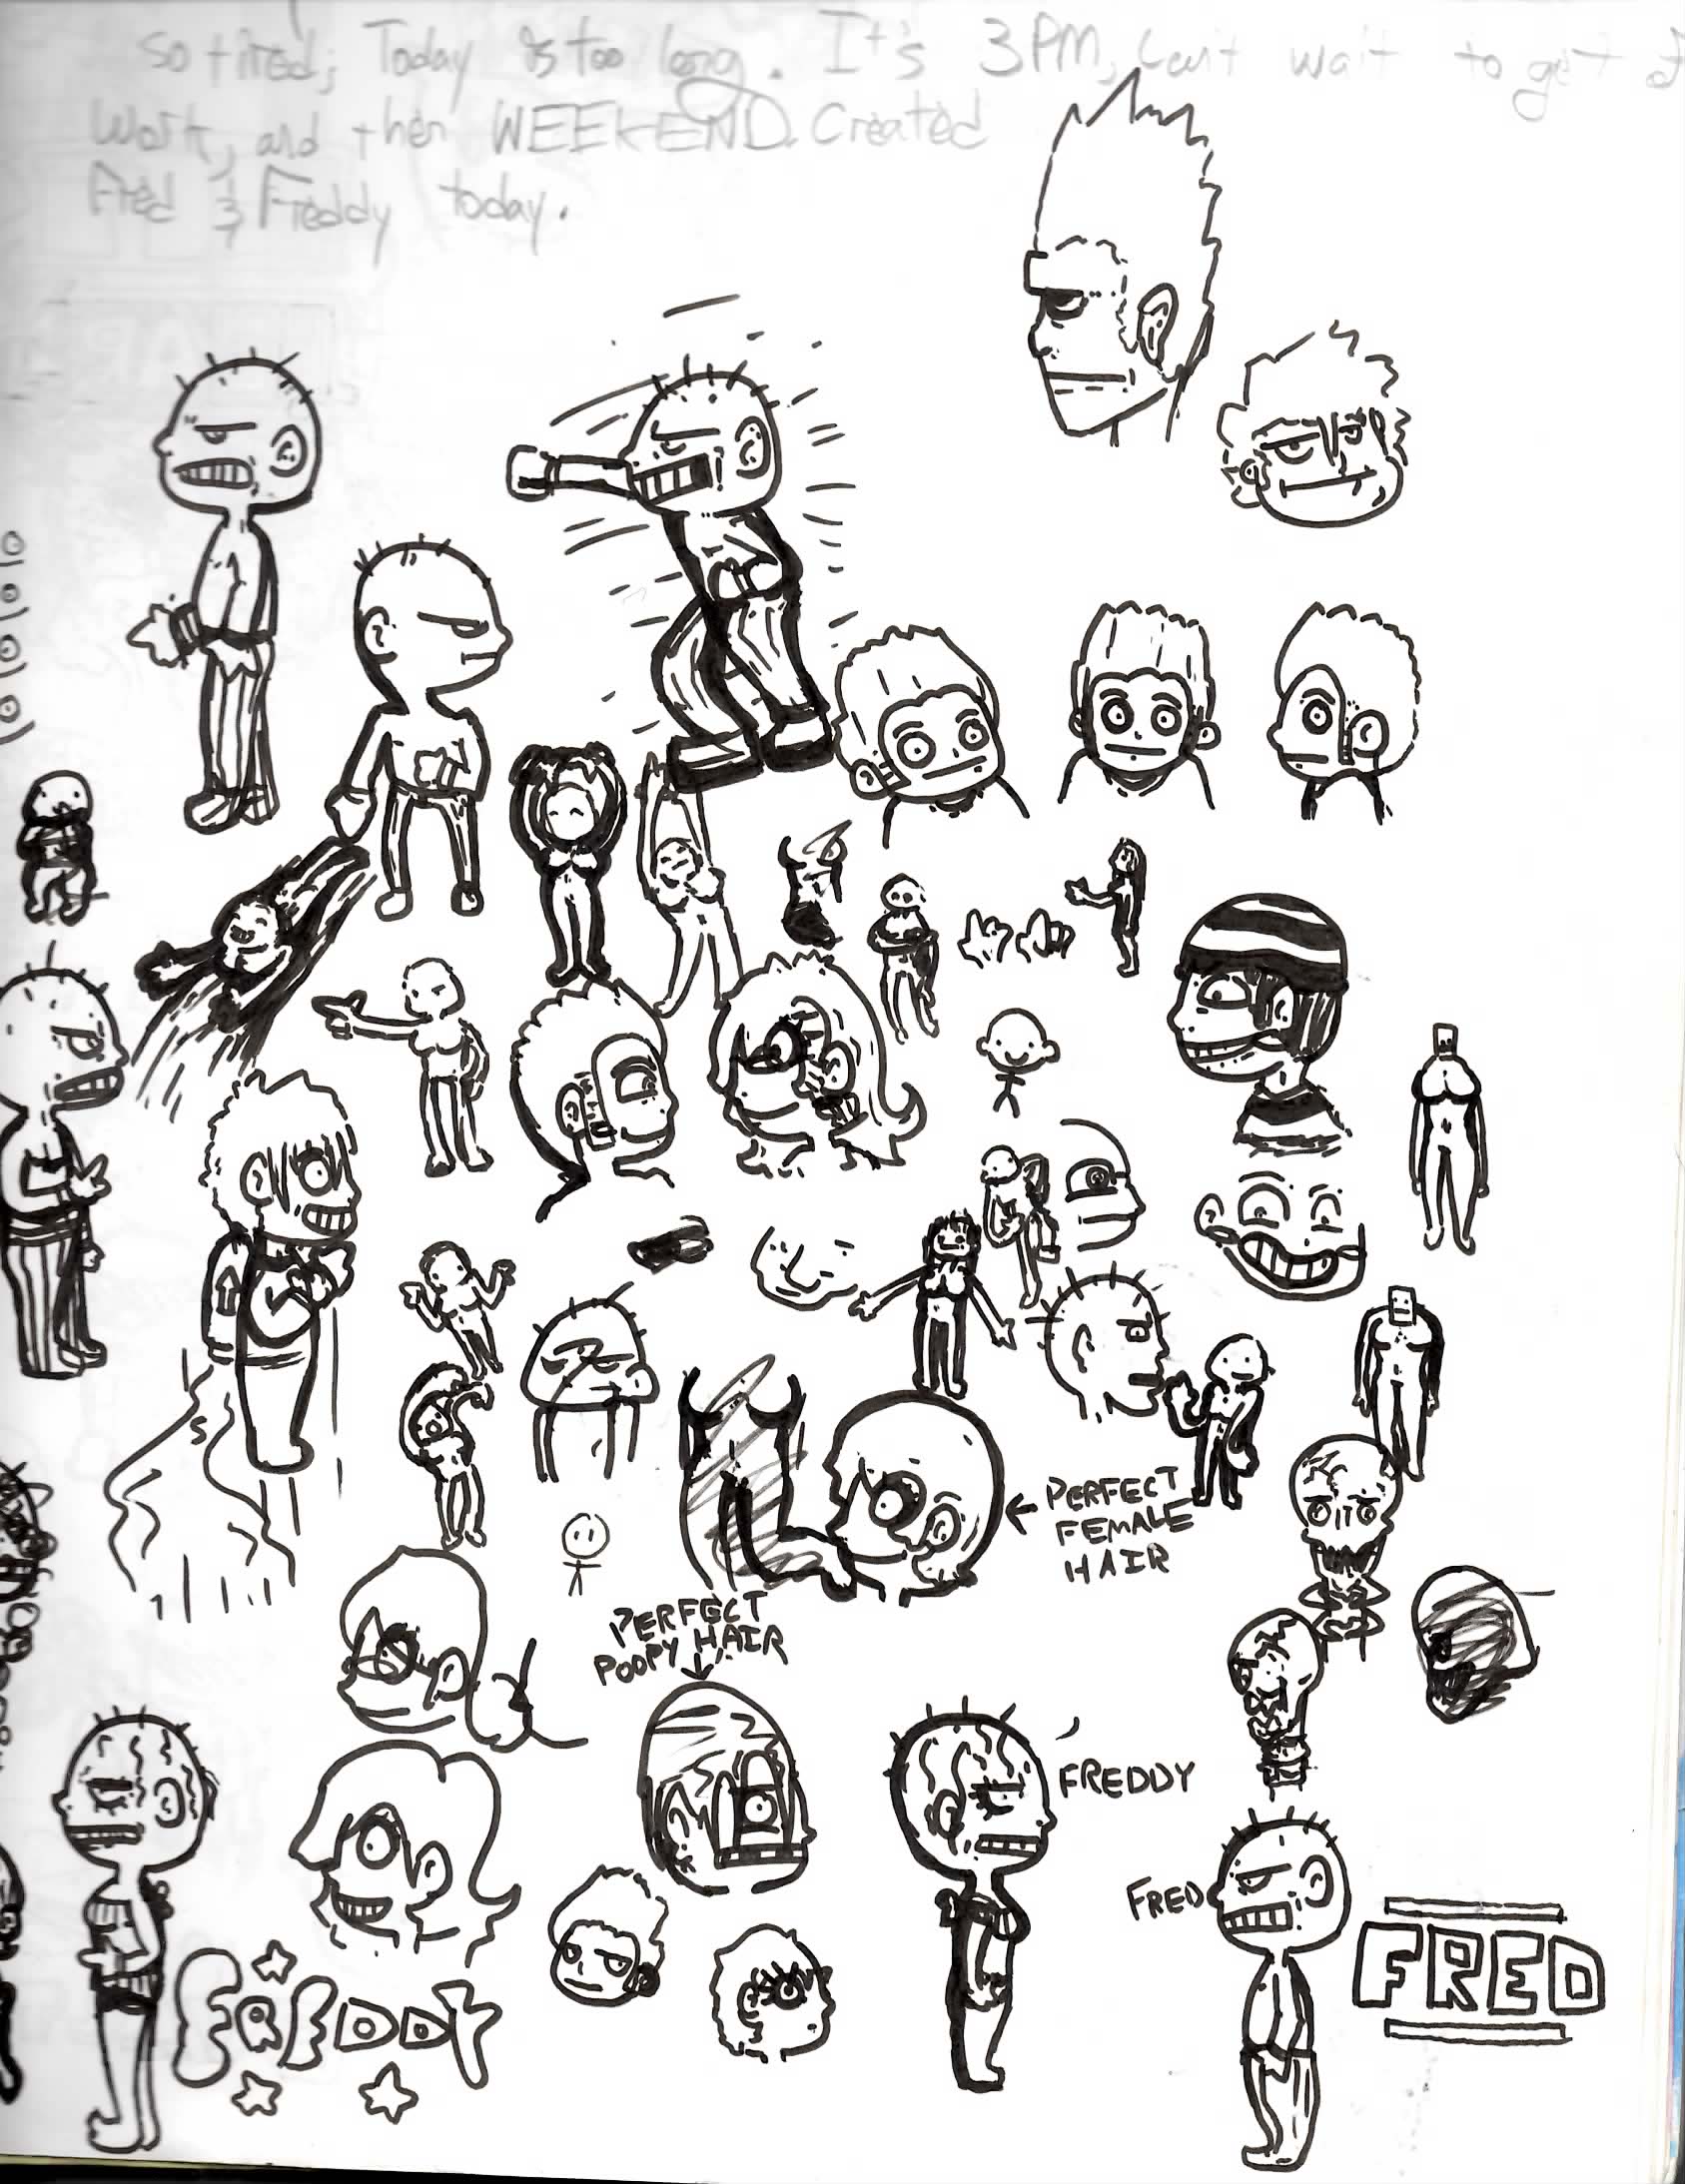 so tired; Today is too long. It's 3PM, can't wait to get
work, and then WEEKEND. Created
Fred & Freddy today.
PERFECT
FEMALE
HAIR
PERFECT
POOPY HAIR
FREDDY
FRED
FRED
FREDDY